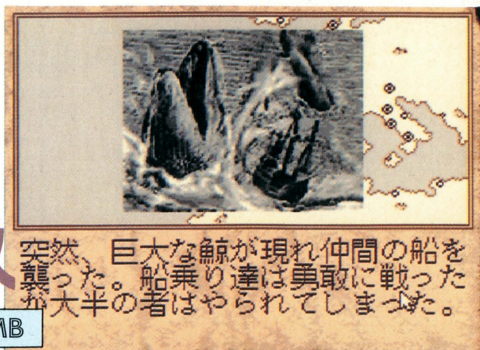 突然、巨大な鯨が現れ仲間の船を
襲った。船乗り達は勇敢に戦った
が大半の者はやられてしまった。
MB